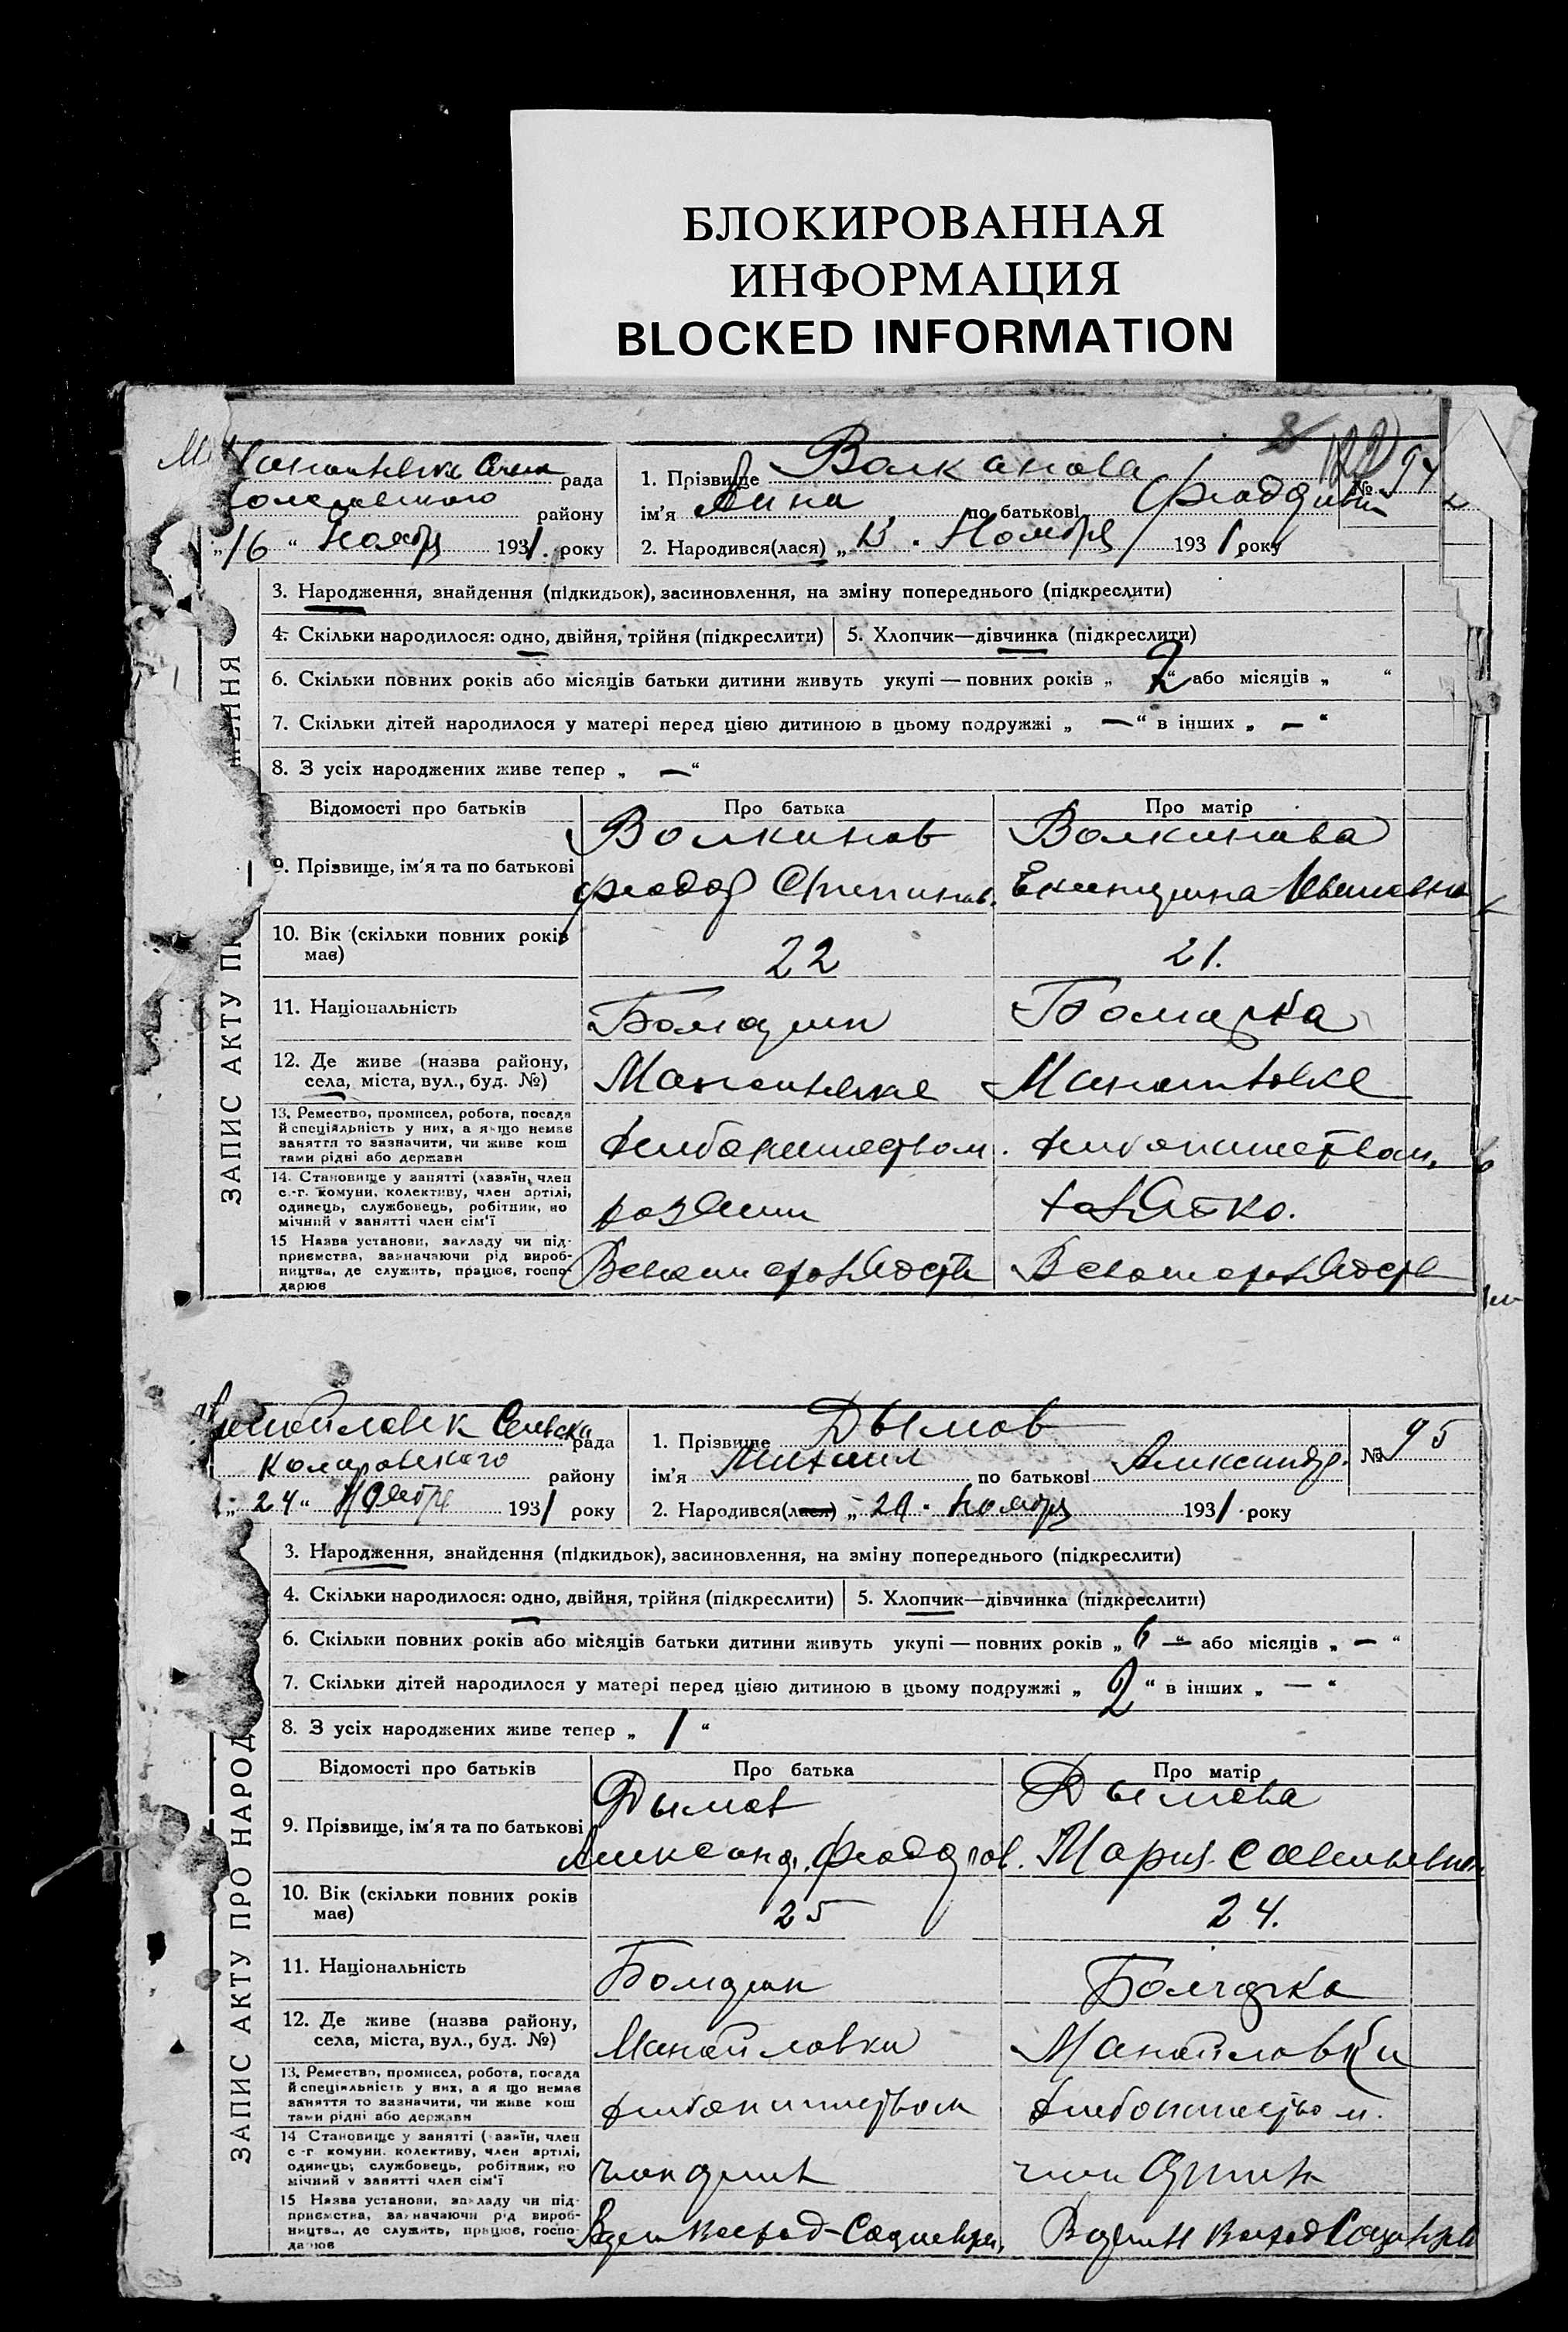 БЛОКИРОВАННАЯ
ИНФОРМАЦИЯ
BLOCKED INFORMATION
рада
району
„16“ Ноября 1931. року
1. Прізвище Волканова
ім'я Анна по батькові
№ 94
2. Народився(лася) „13. Ноября 1931 року
3. Народження, знайдення (підкидьок), засиновлення, на зміну попереднього (підкреслити)
4. Скільки народилося: одно, двійня, трійня (підкреслити)
5. Хлопчик—дівчинка (підкреслити)
6. Скільки повних років або місяців батьки дитини живуть укупі — повних років „ 2 “ або місяців „ “
7. Скільки дітей народилося у матері перед цією дитиною в цьому подружжі „ — “ в інших „ — “
8. З усіх народжених живе тепер „ — “
Відомості про батьків
Про батька
Про матір
9. Прізвище, ім'я та по батькові
Волканов
Феодор Степанов.
Волканова
Екатерина Ивановна
10. Вік (скільки повних років
має)
22
21.
11. Національність
Болгарин
Болгарка
12. Де живе (назва району,
села, міста, вул., буд. №)
13. Ремество, промисел, робота, посада
й спеціяльність у них, а якщо немає
заняття то зазначити, чи живе кош
тами рідні або держави
хлибопашеством.
хлибопашеством,
14. Становище у занятті (хазяїн, член
с.-г. комуни, колективу, член артілі,
одинець, службовець, робітник, по
мічний у занятті член сім'ї
хозяин
хозяйка.
15 Назва установи, закладу чи під-
приємства, зазначаючи рід вироб-
ництва, де служить, працює, госпо-
дарює
ЗАПИС АКТУ ПРО
Сельска
рада
Коларовского району
„24“ Ноября 1931 року
1. Прізвище Дымов
ім'я Михаил по батькові Александр.
№ 95
2. Народився(лася) „20. Ноября 1931. року
3. Народження, знайдення (підкидьок), засиновлення, на зміну попереднього (підкреслити)
4. Скільки народилося: одно, двійня, трійня (підкреслити)
5. Хлопчик—дівчинка (підкреслити)
6. Скільки повних років або місяців батьки дитини живуть укупі — повних років „ 6 — “ або місяців „ — “
7. Скільки дітей народилося у матері перед цією дитиною в цьому подружжі „ 2 “ в інших „ — “
8. З усіх народжених живе тепер „ 1 “
Відомості про батьків
Про батька
Про матір
9. Прізвище, ім'я та по батькові
Дымов
Александ. Феодоров.
Дымова
Мария Савельевна
10. Вік (скільки повних років
має)
25
24.
11. Національність
Болгарин
Болгарка
12. Де живе (назва району,
села, міста, вул., буд. №)
Манойловки
Манойловки
13. Ремество, промисел, робота, посада
й спеціяльність у них, а якщо немає
заняття то зазначити, чи живе кош
тами рідні або держави
хлибопашеством
хлибопашеством.
14 Становище у занятті (хазяїн, член
с-г комуни, колективу, член артілі,
одинець, службовець, робітник, по
мічний у занятті член сім'ї
член артили
член артили
15 Назва установи, закладу чи під-
приємства, зазначаючи рід вироб-
ництва, де служить, працює, госпо-
дарює
ЗАПИС АКТУ ПРО НАРОД